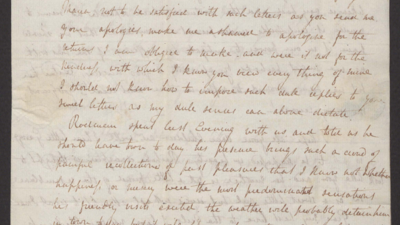 Heaven, not to be satisfied with such letters as you send me
your apologies, make me ashamed to apologize for the
returns I am obliged to make, and were it not for the
kindness, with which I know you view every thing of mine
I should not know how to impose such dull replies to your
usual letters as my dull senses can alone dictate
spent last Evening with us and told us he
should leave town to day his presence brings such a crowd of
painful recollections of past pleasures that I know not whether
happiness, or misery were the most predominated sensations
his friendly visits excited, the weather will probably determine